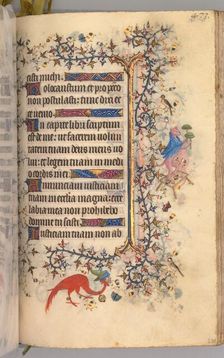 cisti michi.
Holocaustum et pro pecca
non postulasti: tunc dixi et
ce uenio.
In capite libri scriptum
est de me: ut facerem uolun
tatem tuam deus meus uo
lui: et legem tuam in medi
o cordis mei.
Annunciaui iusticiam
tuam in ecclesia magna: ecce
labia mea non prohibebo
domine tu scisti.
Iusticiam tuam non ab